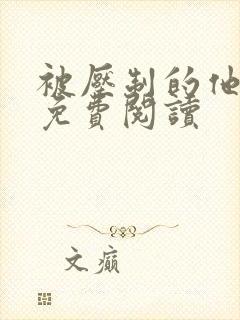 被壓制的他
免費閱讀
文癲